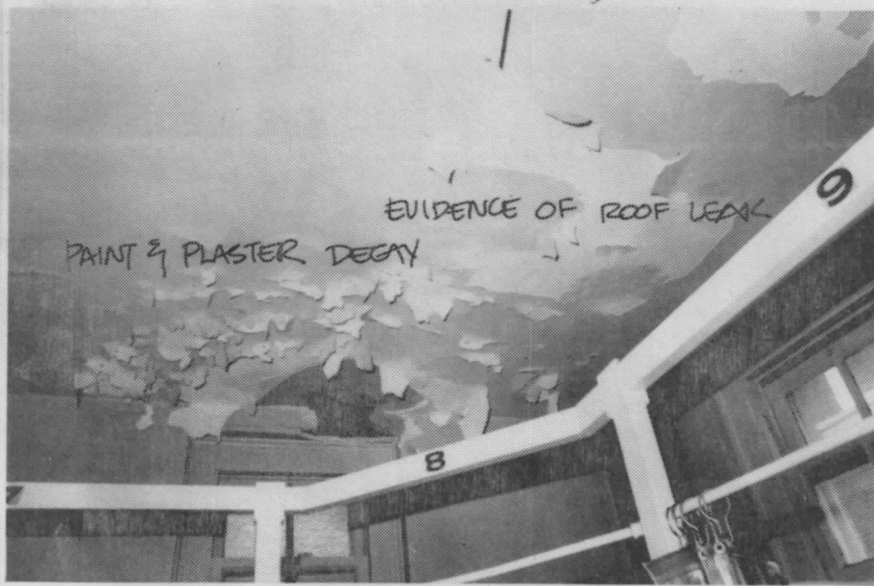 EVIDENCE OF ROOF LEAK
PAINT & PLASTER DECAY
9
8